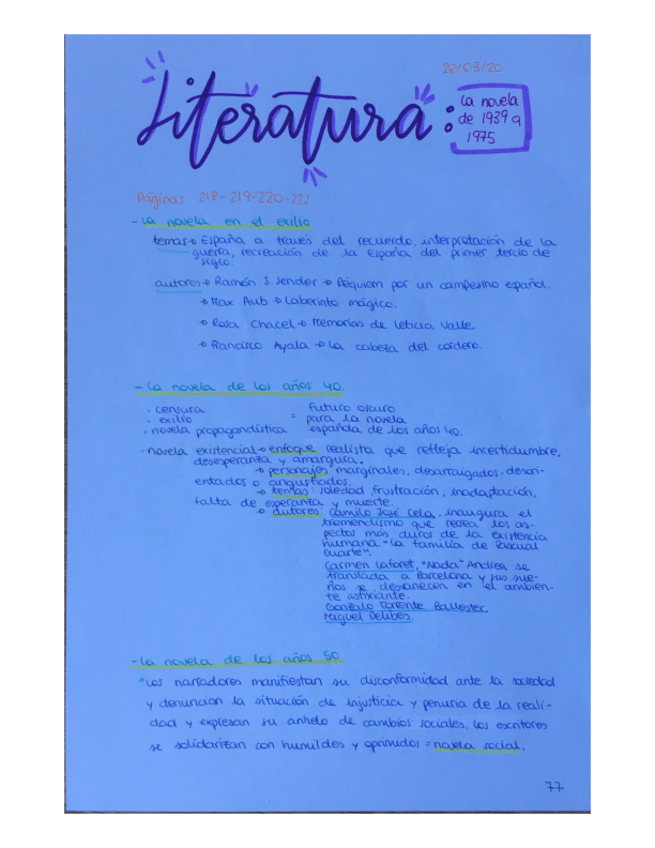 28/03/20
Literatura:
La novela
de 1939 a
1975
Páginas 218-219-220-222
- La novela en el exilio
temas → España a través del recuerdo, interpretación de la
guerra, recreación de la España del primer tercio de
siglo.
autores → Ramón S. Sender → Réquiem por un campesino español.
→ Max Aub → Laberinto mágico.
→ Rosa Chacel → Memorias de Leticia Valle.
→ Francisco Ayala → La cabeza del cordero.
- La novela de los años 40.
· censura
· exilio
· novela propagandística
= futuro oscuro
para la novela
española de los años 40.
· novela existencial → enfoque realista que refleja incertidumbre,
desesperanza y amargura.
→ personajes marginales, desarraigados, desori-
entados o angustiados.
→ temas: soledad, frustración, inadaptación,
falta de esperanza y muerte.
→ autores: Camilo José Cela, inaugura el
tremendismo que recrea los as-
pectos más duros de la existencia
humana "La familia de Pascual
Duarte".
Carmen Laforet, "Nada" Andrea se
translada a Barcelona y sus sue-
ños se desvanecen en el ambien-
te asfixiante.
Gonzalo Torrente Ballester.
Miguel Delibes.
- La novela de los años 50
· Los narradores manifiestan su disconformidad ante la sociedad
y denuncian la situación de injusticia y penuria de la reali-
dad y expresan su anhelo de cambios sociales, los escritores
se solidarizan con humildes y oprimidos = novela social.
77